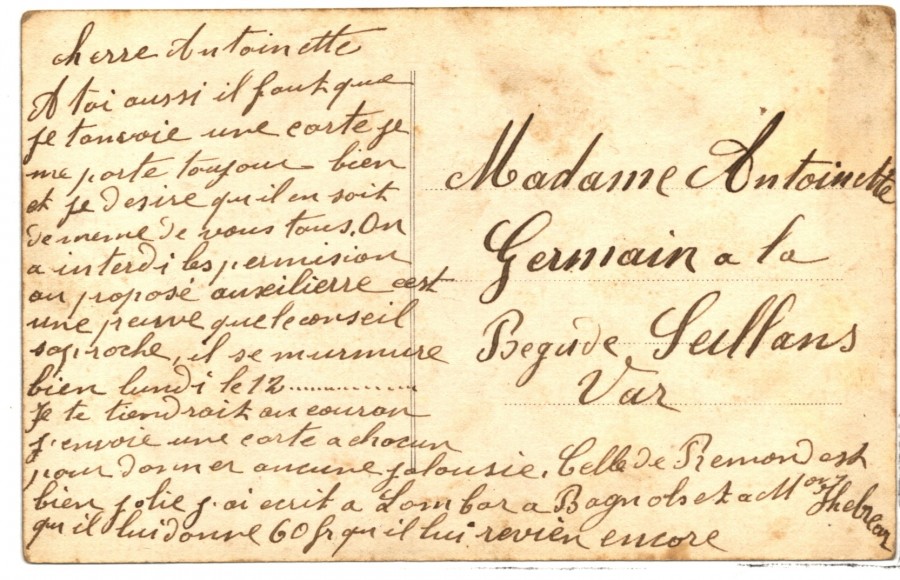 cherre Antoinette
A toi aussi il faut que
je tanvoie une carte je
me porte toujour bien
et je desire qu'il en soit
de meme de vous tous. On
a interdi les permision
au proposé auxilierre cest
une preuve que le conseil
saproche, il se murmure
bien lundi le 12..............
Je te tiendrait au couran
j'envoie une carte a chacun
pour donner aucune jalousie. Celle de Remond est
bien jolie j'ai ecrit a Lombar a Bagnols et a Mon
qu'il lui donne 60 fr qu'il lui revien encore
Madame Antoinette
Germain a la
Begude Seillans
Var